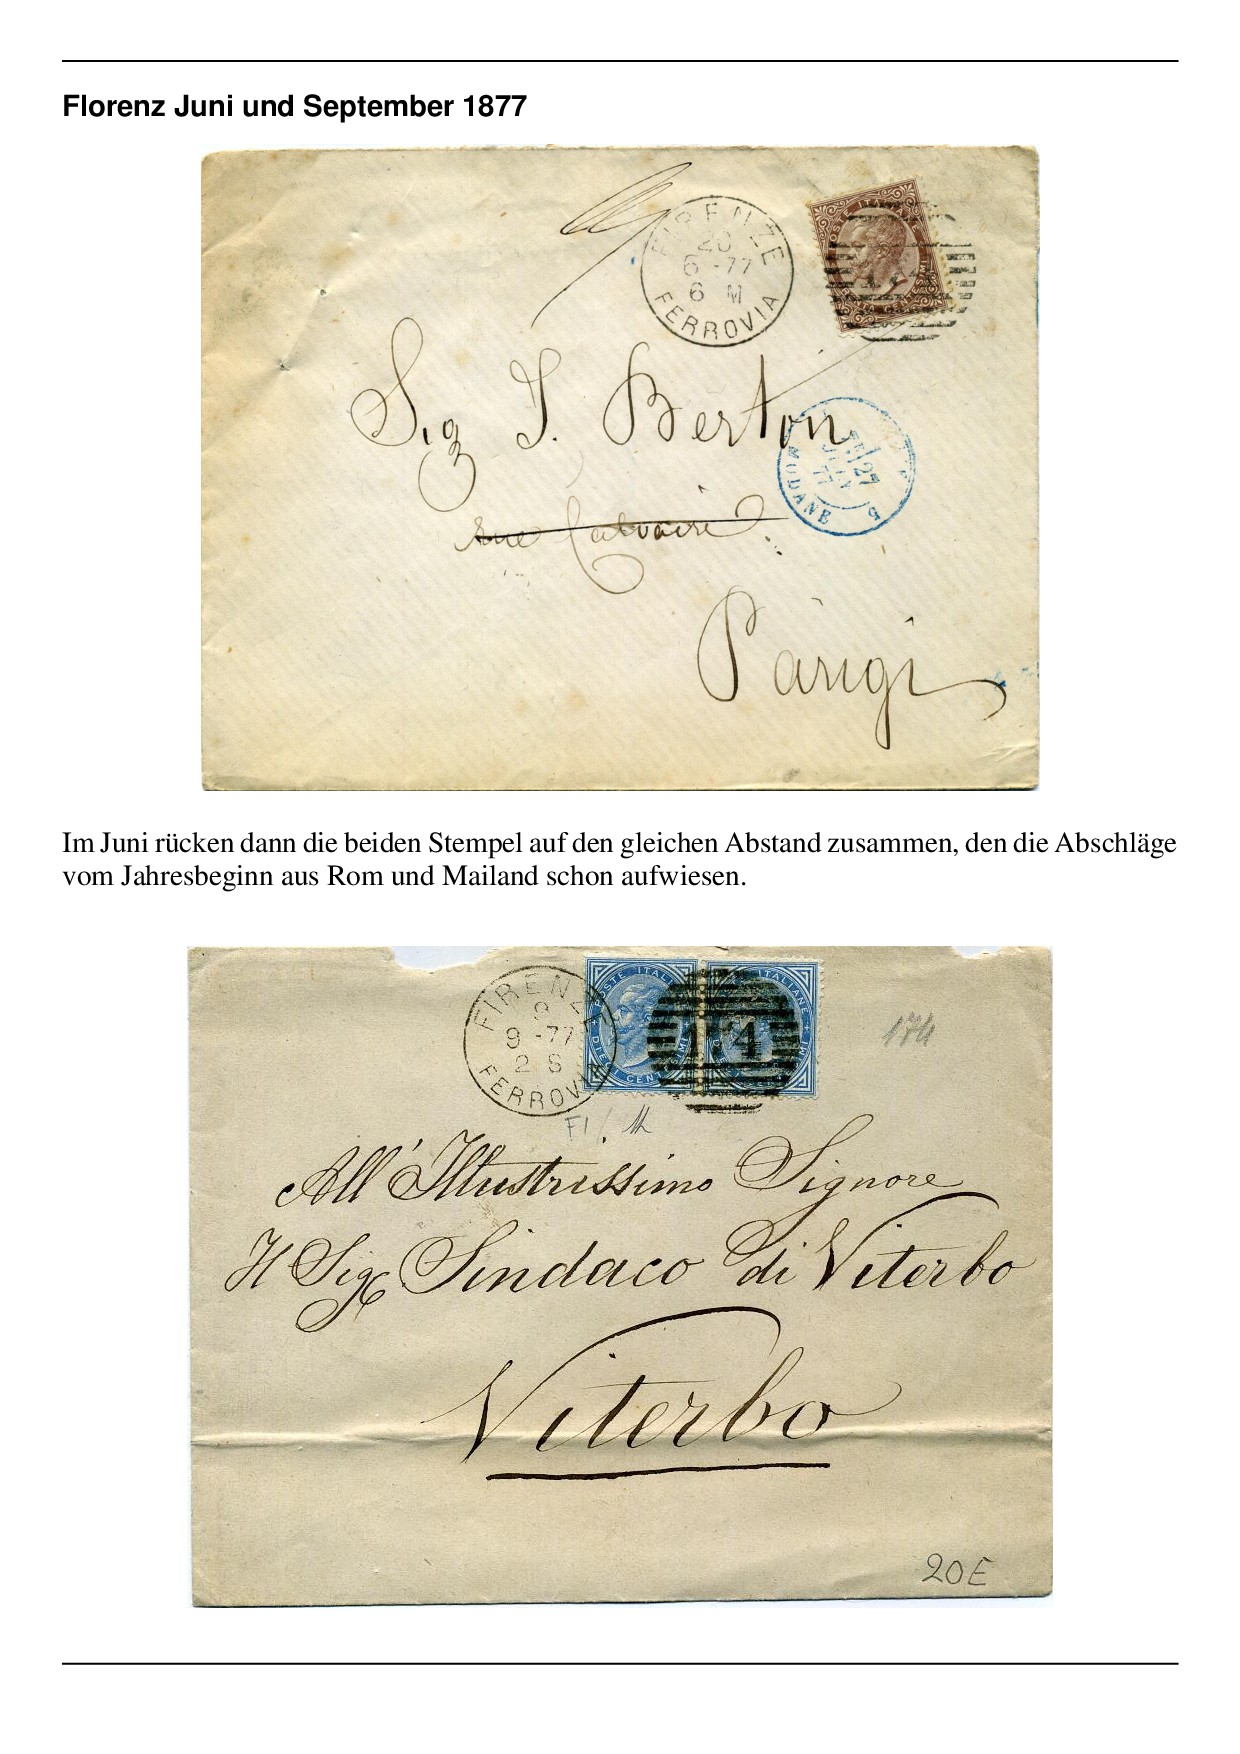 Florenz Juni und September 1877
FIRENZE
20
6 -77
6 M
FERROVIA
POSTE ITALIANE
CENTESIMI
Sig J. Berton
rue Calvaire
MODANE
27
77
Parigi
Im Juni rücken dann die beiden Stempel auf den gleichen Abstand zusammen, den die Abschläge
vom Jahresbeginn aus Rom und Mailand schon aufwiesen.
FIRENZE
9
9 -77
2 S
FERROVIA
POSTE ITALIANE
DIECI CENTESIMI
ITALIANE
174
All' Illustrissimo Signore
Il Sig Sindaco di Viterbo
Viterbo
20E